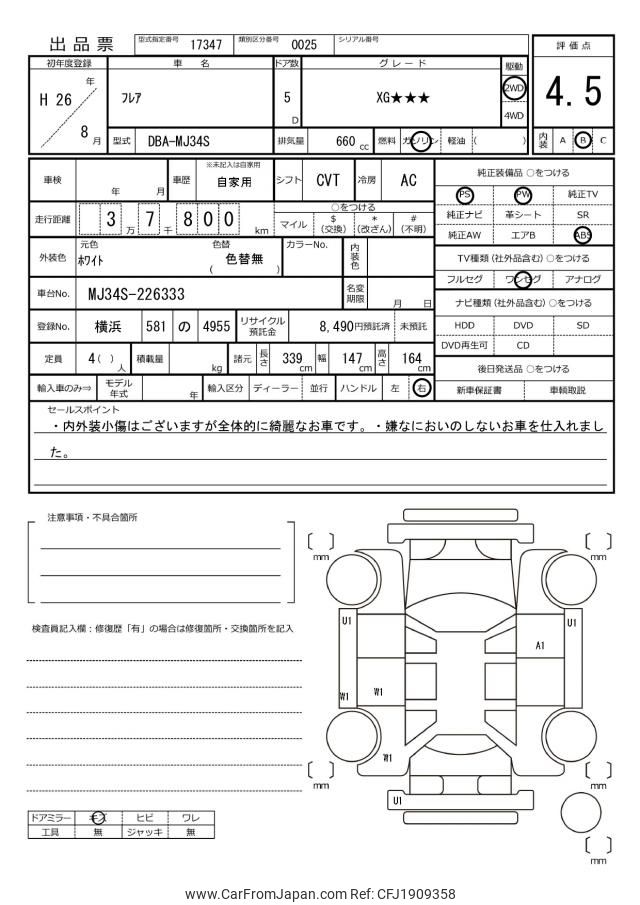 出品票 型式指定番号 17347 類別区分番号 0025 シリアル番号
評価点
4.5
内装 A B C
初年度登録 車名 ドア数 グレード 駆動
H 26 年 8 月 フレア 5 D XG★★★ 2WD 4WD
型式 DBA-MJ34S 排気量 660 cc 燃料 ガソリン 軽油 ( )
車検 年 月 車歴 ※未記入は自家用 自家用 シフト CVT 冷房 AC
走行距離 3 7 8 0 0 万 千 km
○をつける
マイル $ (交換) * (改ざん) # (不明)
外装色 元色 ホワイト 色替 ( 色替無 ) カラーNo. 内装色
車台No. MJ34S-226333 名変期限 月 日
登録No. 横浜 581 の 4955 リサイクル預託金 8,490円預託済 未預託
定員 4( ) 人 積載量 kg 諸元 長さ 339 cm 幅 147 cm 高さ 164 cm
輸入車のみ⇒ モデル年式 年 輸入区分 ディーラー 並行 ハンドル 左 右
純正装備品 ○をつける
PS PW 純正TV
純正ナビ 革シート SR
純正AW エアB ABS
TV種類 (社外品含む) ○をつける
フルセグ ワンセグ アナログ
ナビ種類 (社外品含む) ○をつける
HDD DVD SD
DVD再生可 CD
後日発送品 ○をつける
新車保証書 車輌取説
セールスポイント
・内外装小傷はございますが全体的に綺麗なお車です。・嫌なにおいのしないお車を仕入れまし
た。
注意事項・不具合箇所
検査員記入欄：修復歴「有」の場合は修復箇所・交換箇所を記入
mm mm
U1 U1
A1
W1 W1
W1
mm mm
U1
mm
ドアミラー キズ ヒビ ワレ
工具 無 ジャッキ 無
www.CarFromJapan.com Ref: CFJ1909358